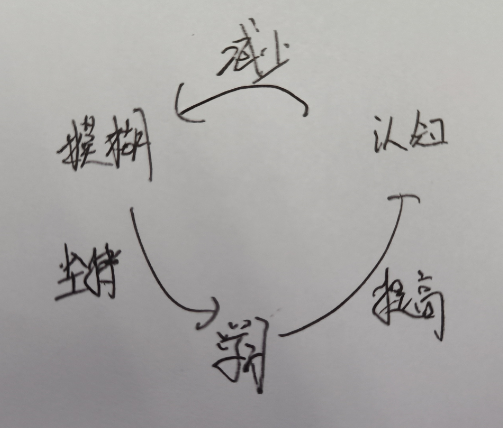 减少
模糊
认知
坚持
提高
学习